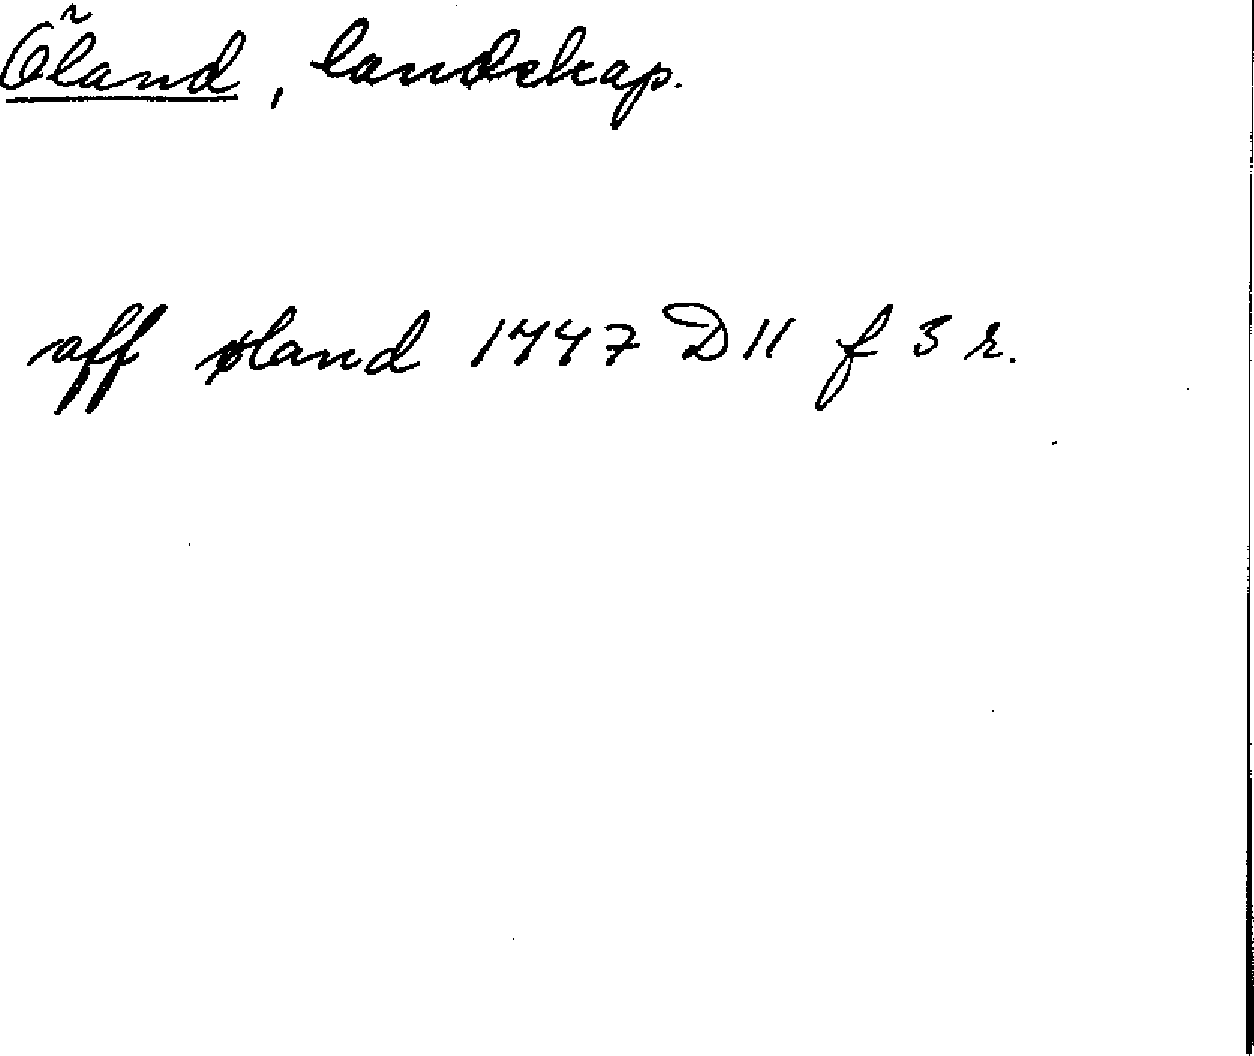 Öland, landskap.
aff øland 1447 D11 f 3 r.